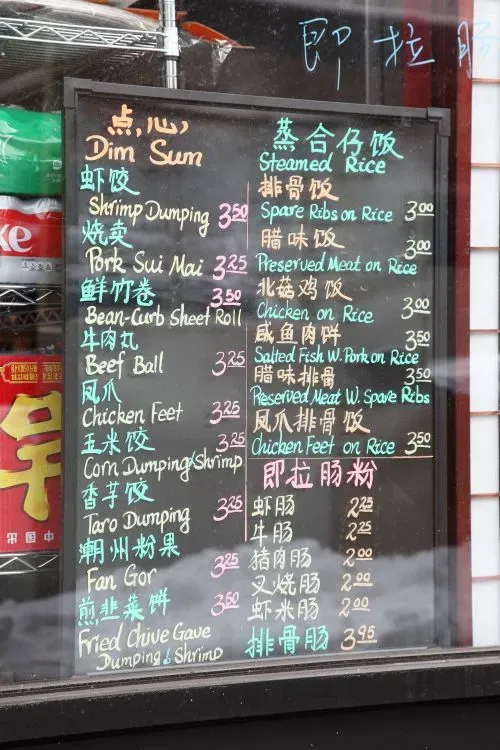 即拉肠
点心
Dim Sum
虾饺
Shrimp Dumping 3.50
烧卖
Pork Sui Mai 3.25
鲜竹卷 3.50
Bean-Curb Sheet Roll
牛肉丸
Beef Ball 3.25
凤爪
Chicken Feet 3.25
玉米饺 3.25
Corn Dumping/Shrimp
香芋饺
Taro Dumping 3.25
潮州粉果
Fan Gor 3.25
煎韭菜饼 3.50
Fried Chive Gave
Dumping & Shrimp
蒸合仔饭
Steamed Rice
排骨饭
Spare Ribs on Rice 3.00
腊味饭 3.00
Preserved Meat on Rice
北菇鸡饭
Chicken on Rice 3.00
咸鱼肉饼 3.50
Salted Fish W. Pork on Rice
腊味排骨 3.50
Preserved Meat W. Spare Ribs
凤爪排骨饭
Chicken Feet on Rice 3.50
即拉肠粉
虾肠 2.25
牛肠 2.25
猪肉肠 2.00
叉烧肠 2.00
虾米肠 2.00
排骨肠 3.95
ke